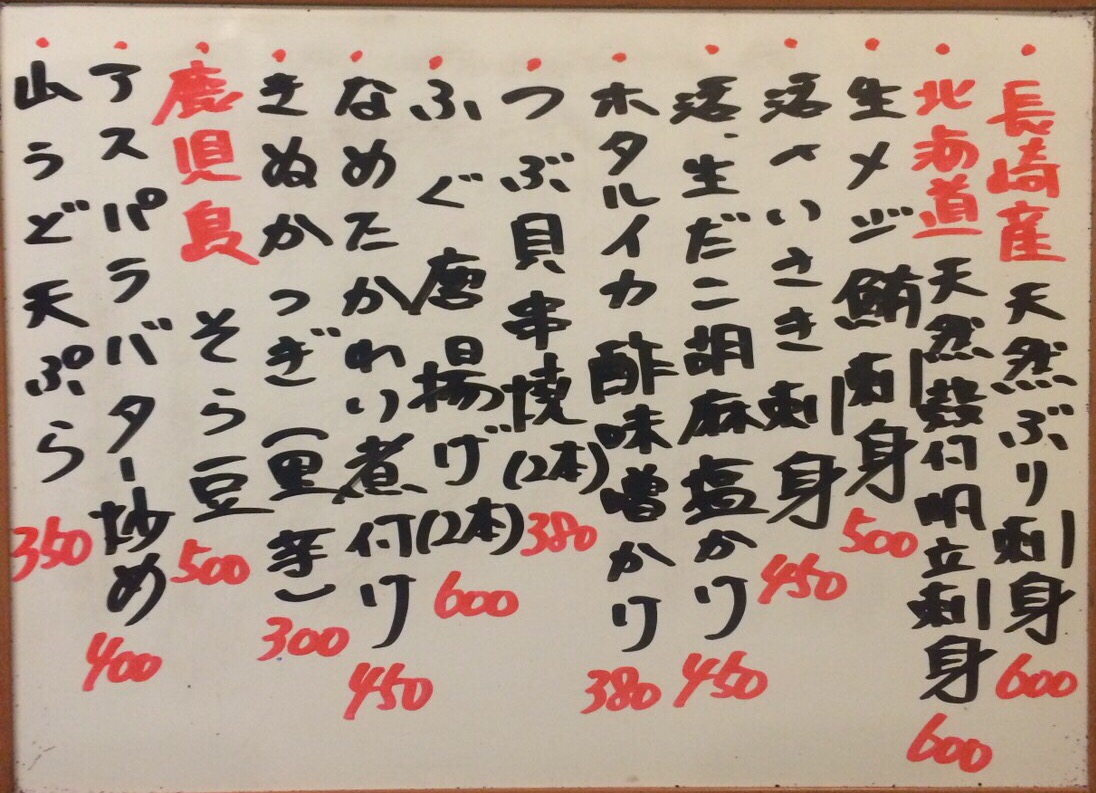 長崎産 天然ぶり刺身 600
北海道 天然殻付帆立刺身 600
生メジ鮪刺身 500
活〆いさき刺身 450
活、生だこ胡麻塩かけ 450
ホタルイカ酢味噌かけ 380
つぶ貝串焼(2本) 380
ふぐ唐揚げ(2本) 600
なめたかれい煮付け 450
きぬかつぎ(里芋) 300
鹿児島 そら豆 500
アスパラバター炒め 400
山うど天ぷら 350